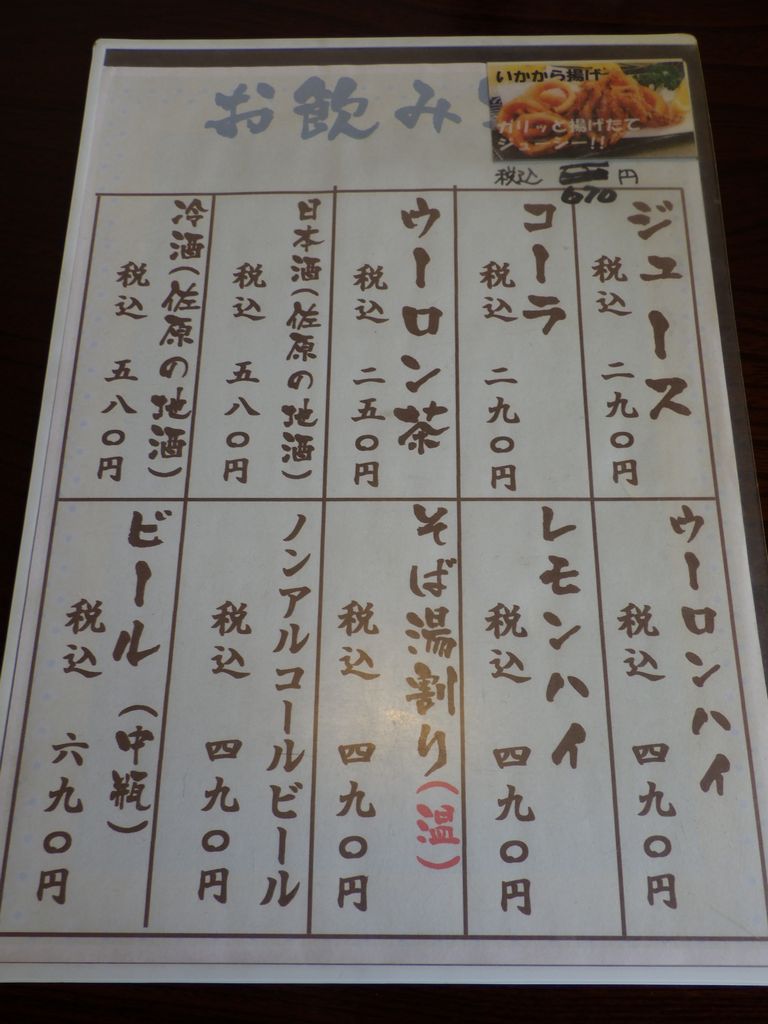 お飲み
いかから揚げ
ガリッと揚げたて
ジューシー!!
税込
670
円
ジュース
税込 二九〇円
コーラ
税込 二九〇円
ウーロン茶
税込 二五〇円
日本酒(佐原の地酒)
税込 五八〇円
冷酒(佐原の地酒)
税込 五八〇円
ウーロンハイ
税込 四九〇円
レモンハイ
税込 四九〇円
そば湯割り(温)
税込 四九〇円
ノンアルコールビール
税込 四九〇円
ビール(中瓶)
税込 六九〇円